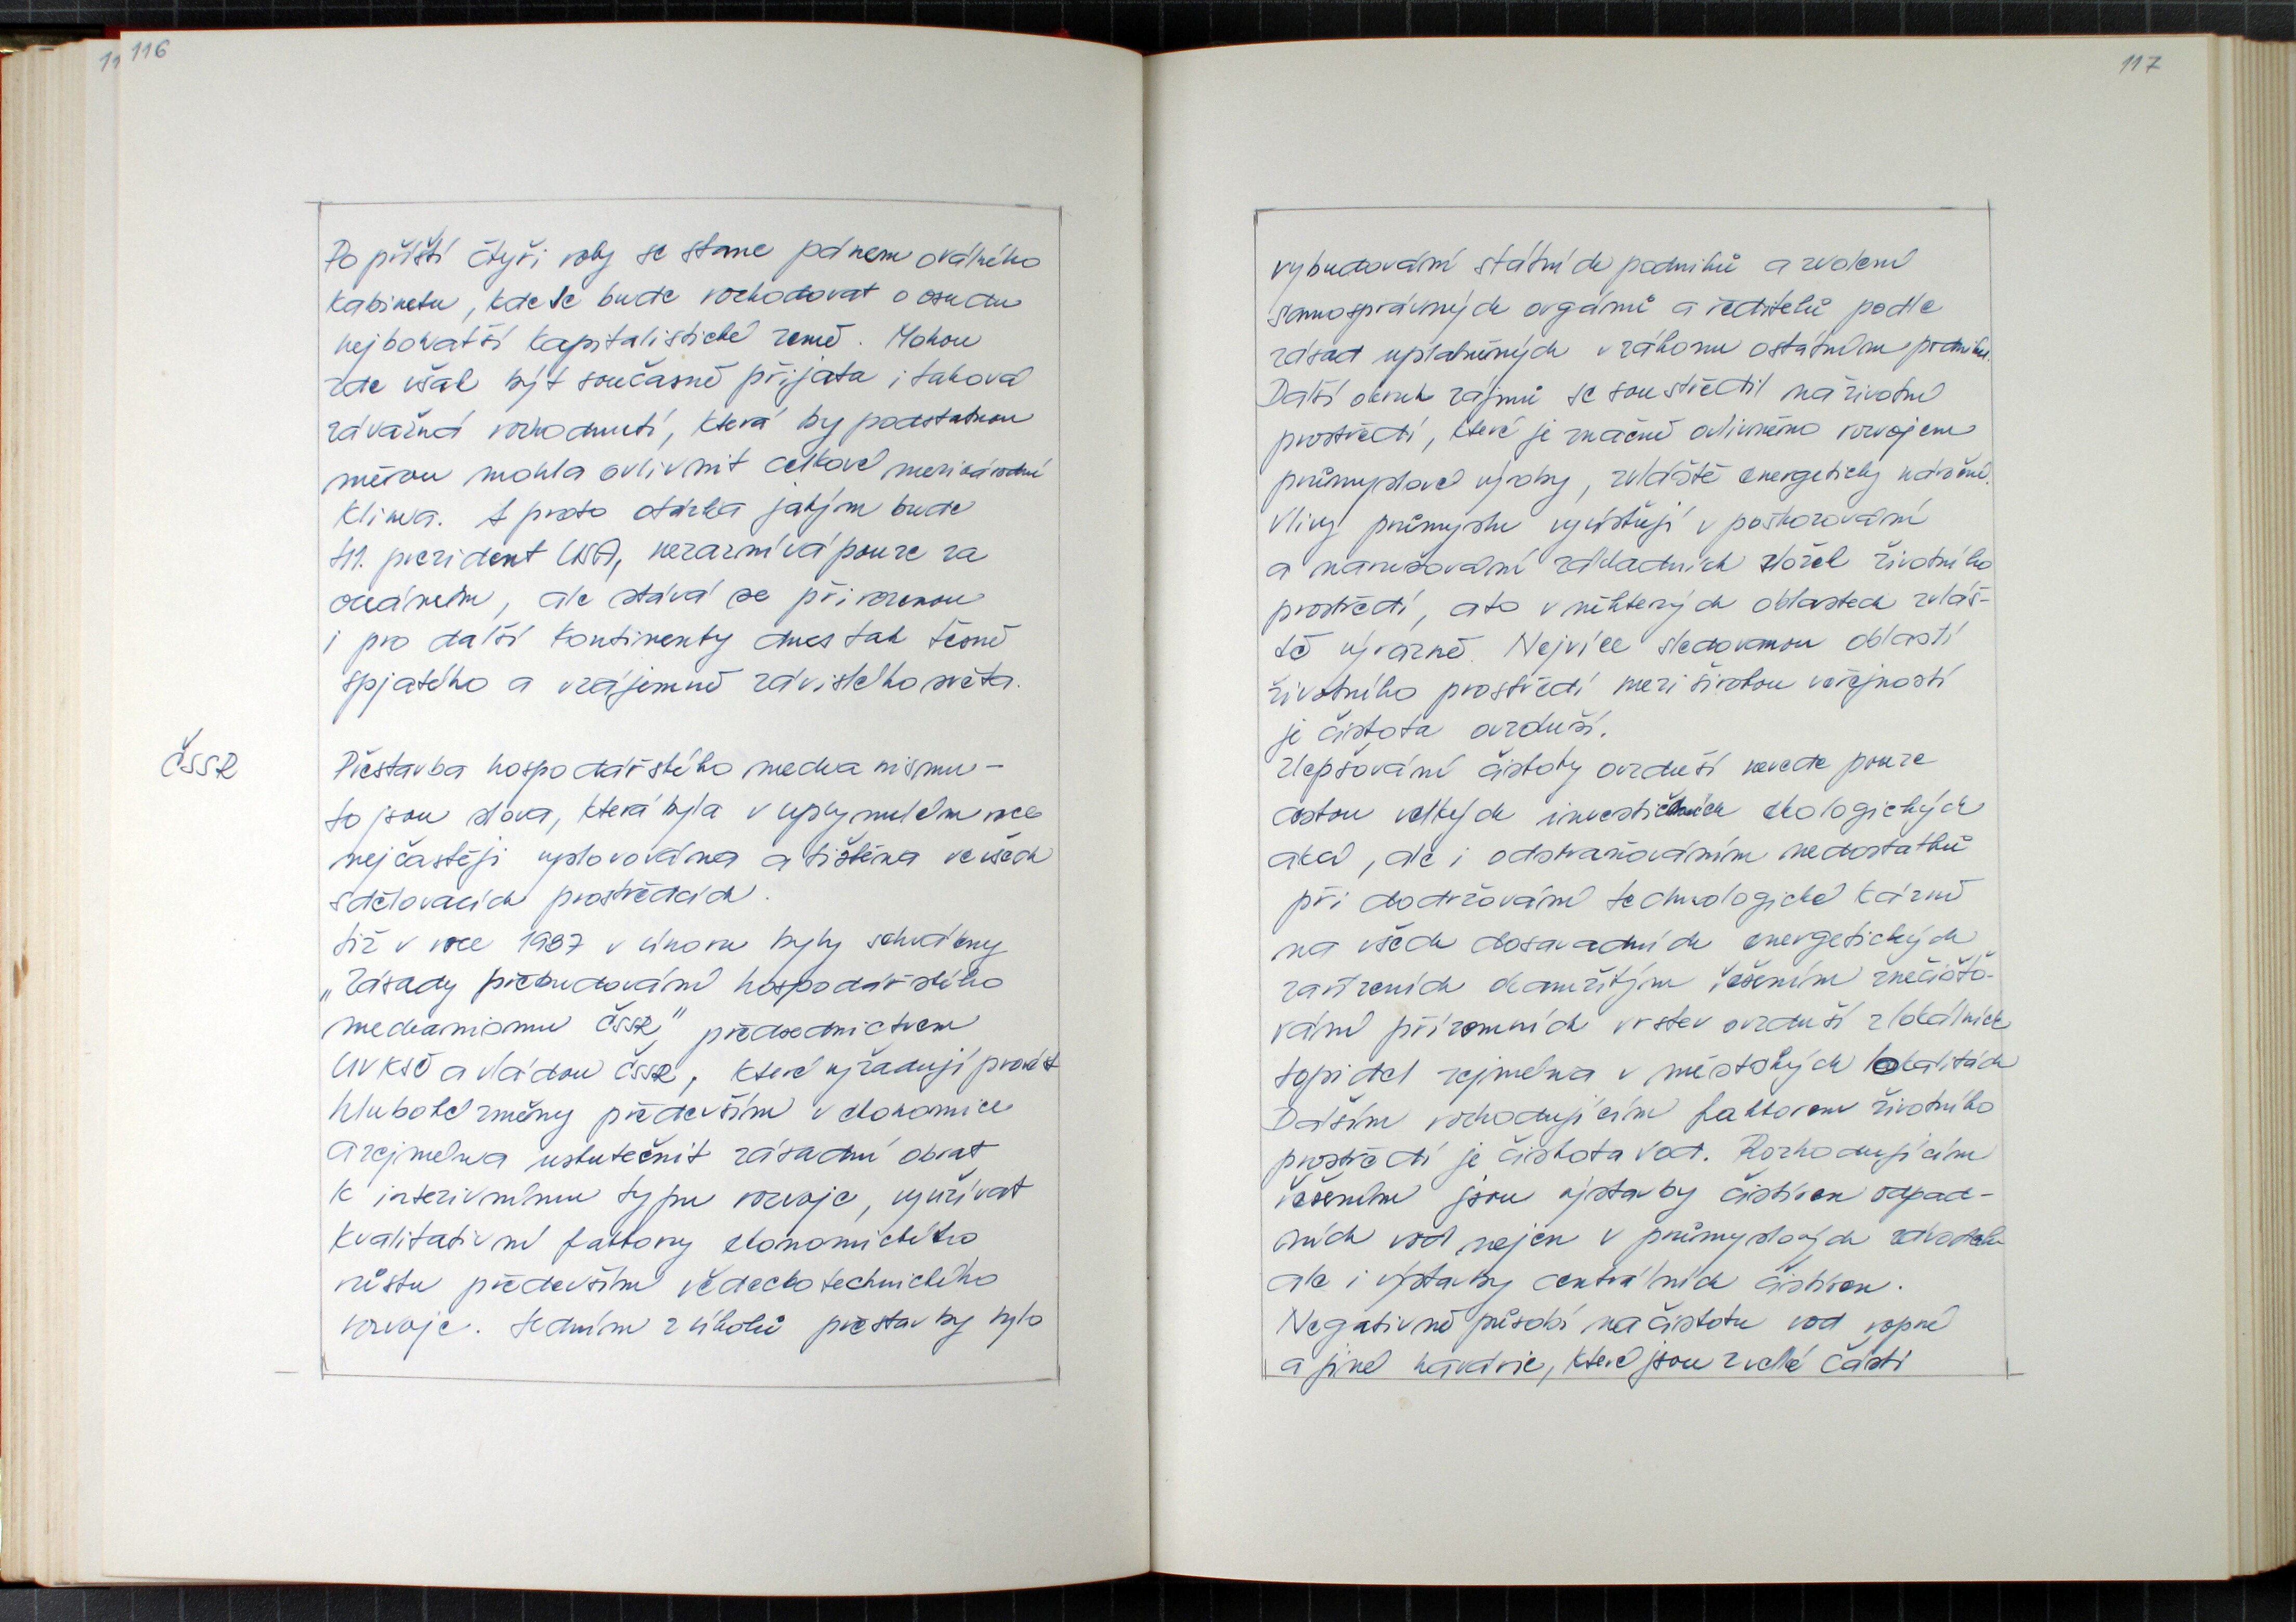 116
Po příští čtyři roky se stane pánem oválného
kabinetu, kde se bude rozhodovat o osudu
nejbohatší kapitalistické země. Mohou
zde však být současně přijata i taková
závažná rozhodnutí, která by podstatnou
měrou mohla ovlivnit celkové mezinárodní
klima. A proto otázka jakým bude
41. prezident USA, nezaznívá pouze za
oceánem, ale stává se přirozenou
i pro další kontinenty dnes tak těsně
spjatého a vzájemně závislého světa.
ČSSR
Přestavba hospodářského mechanismu -
to jsou slova, která byla v uplynulém roce
nejčastěji vyslovována a tištěna ve všech
sdělovacích prostředcích.
Již v roce 1987 v únoru byly schváleny
„Zásady přebudování hospodářského
mechanismu ČSSR" předsednictvem
ÚV KSČ a vládou ČSSR, které vyžadují provést
hluboké změny především v ekonomice
a zejména uskutečnit zásadní obrat
k intezivnímu typu rozvoje, využívat
kvalitativní faktory ekonomického
růstu především vědeckotechnického
rozvoje. Jedním z úkolů přestavby bylo
117
vybudování státních podniků a zvolení
samosprávných orgánů a ředitelů podle
zásad uplatněných v zákonu o státním podniku.
Další okruh zájmů se soustředil na životní
prostředí, které je značně ovlivněno rozvojem
průmyslové výroby, zvláště energeticky náročné.
Vlivy průmyslu vyúsťují v poškozování
a narušování základních složek životního
prostředí, a to v některých oblastech zvláš-
tě výrazně. Nejvíce sledovanou oblastí
životního prostředí mezi širokou veřejností
je čistota ovzduší.
Zlepšování čistoty ovzduší nevede pouze
cestou velkých investičních ekologických
akcí, ale i odstraňováním nedostatků
při dodržování technologické kázně
na všech dosavadních energetických
zařízeních okamžitým řešením znečišťo-
vání přízemních vrstev ovzduší z lokálních
topidel zejména v městských lokalitách
Dalším rozhodujícím faktorem životního
prostředí je čistota vod. Rozhodujícím
řešením jsou výstavby čistíren odpad-
ních vod nejen v průmyslových závodech
ale i výstavby centrálních čistíren.
Negativně působí na čistotu vod ropné
a jiné havárie, které jsou z velké části